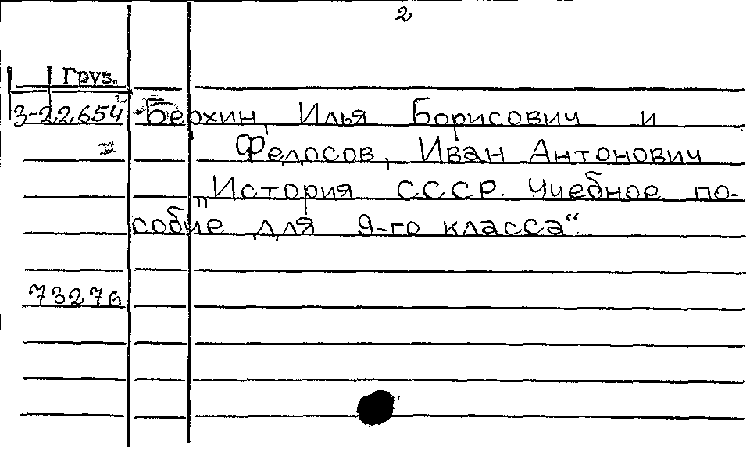 2
Груз.
3-22.654 Берхин, Илья Борисович и
Федосов, Иван Антонович
"История СССР. Учебное по-
собие для 9-го класса"